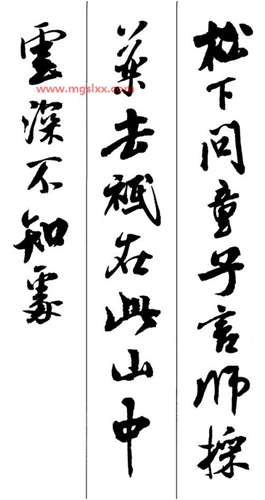 松下問童子言師採
藥去祗在此山中
雲深不知處
www.mgslxx.com